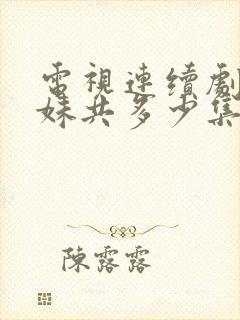 電視連續劇
妹共多少集
陳露露